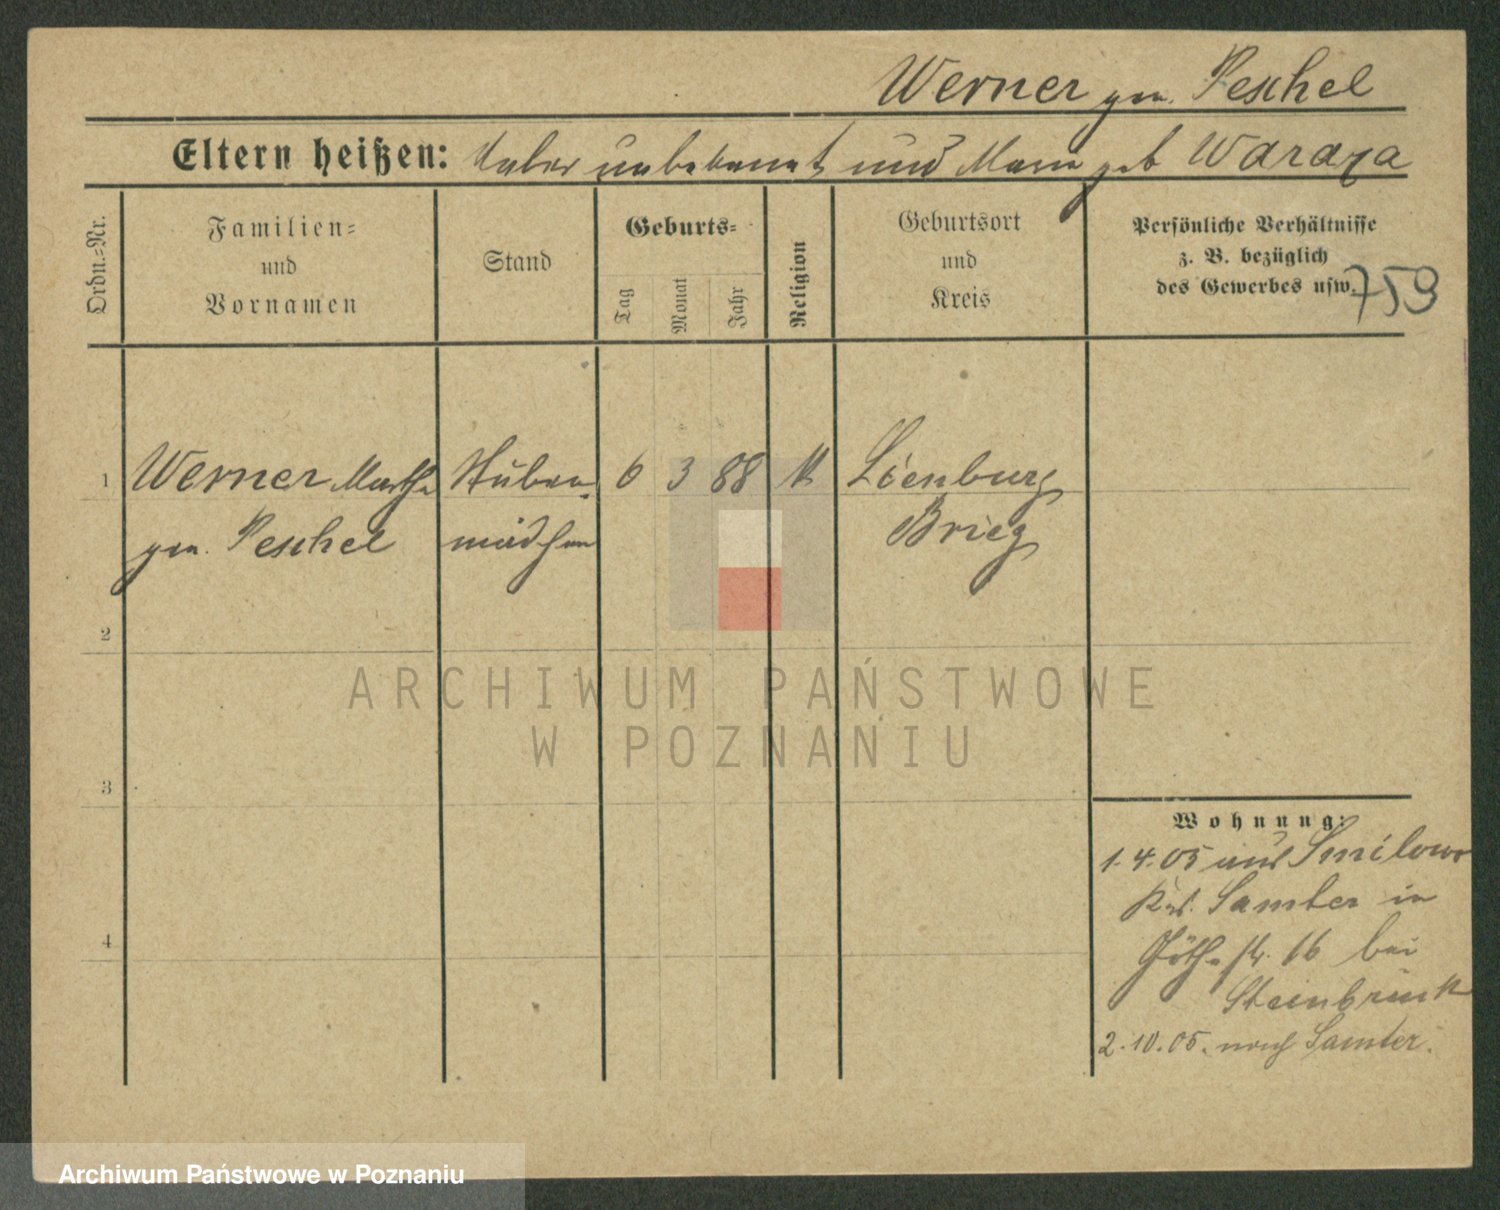 Werner gen. Peschel
Eltern heißen: Vater unbekannt und Marie geb Waraza
Ordn.-Nr.
Familien-
und
Vornamen
Stand
Geburts-
Tag
Monat
Jahr
Religion
Geburtsort
und
Kreis
Persönliche Verhältnisse
z. B. bezüglich
des Gewerbes usw.
759
1 Werner Marthe Stuben- 6 3 88 K Löenburg
gen. Peschel mädchen Brieg
2
3
4
ARCHIWUM PAŃSTWOWE
W POZNANIU
Wohnung:
1.4.05 aus Smilowo
Krs. Samter in
Göthestr. 16 bei
Steinbrück
2.10.05. nach Samter.
Archiwum Państwowe w Poznaniu